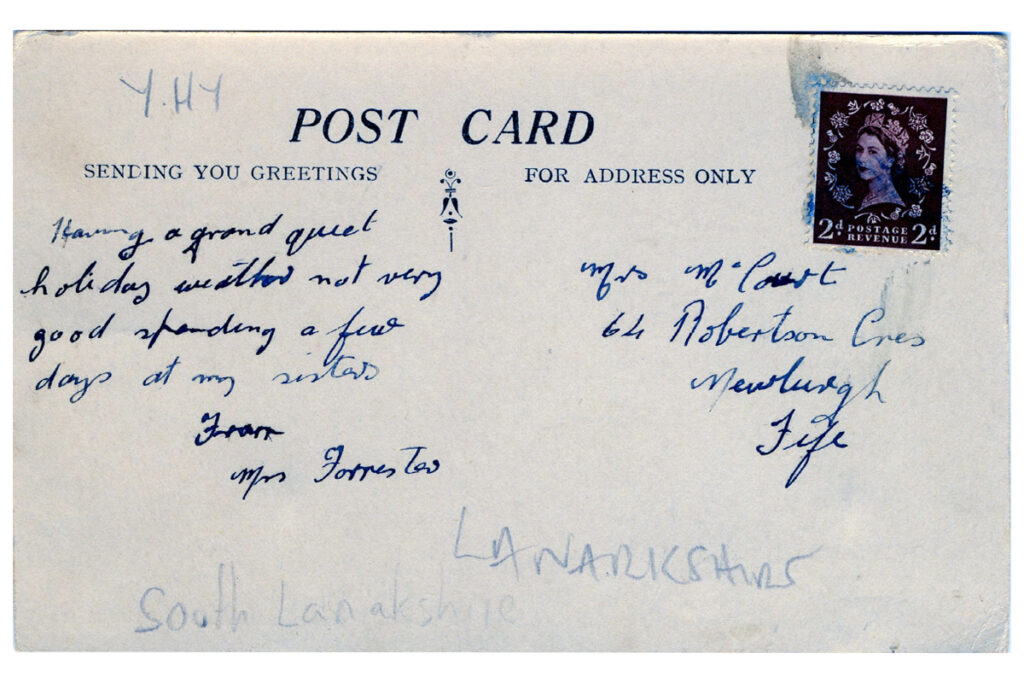 Y.HY
POST CARD
SENDING YOU GREETINGS
FOR ADDRESS ONLY
2d. POSTAGE REVENUE 2d.
Having a grand quiet
holiday weather not very
good spending a few
days at my sisters
From
Mrs Forrester
Mrs McCourt
64 Robertson Cres
Newburgh
Fife
LANARKSHIRE
South Lanakshire